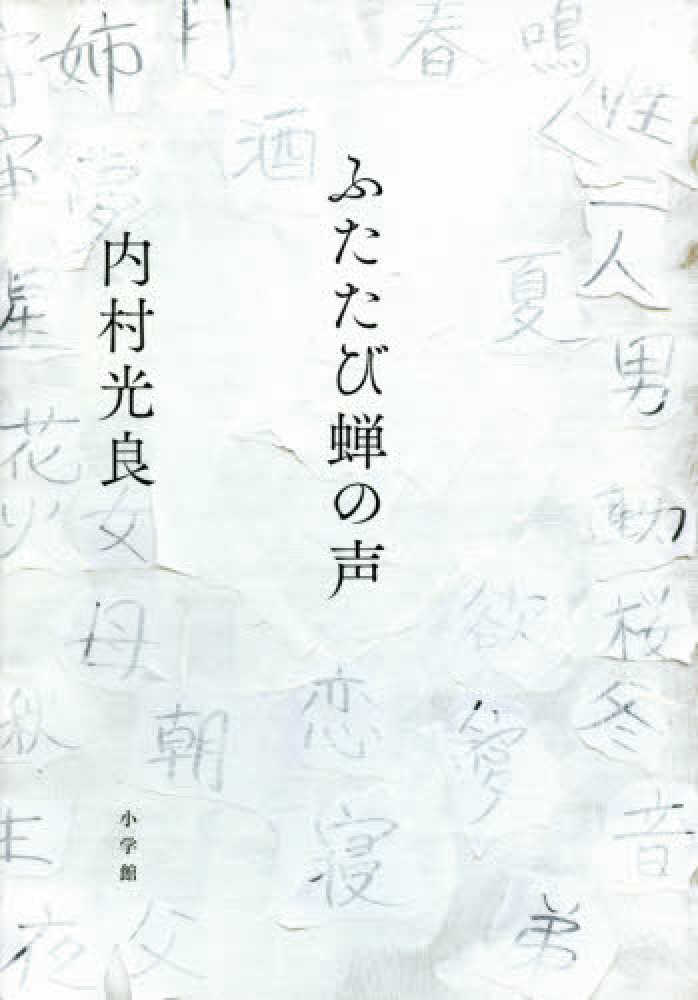 ふたたび蝉の声
内村光良
小学館
姉
月
春
鳴
性
酒
夢
宇
宙
二人
夏
星
男
花
火
女
動
母
欲
桜
秋
朝
恋
愛
冬
生
寝
音
夜
父
弟